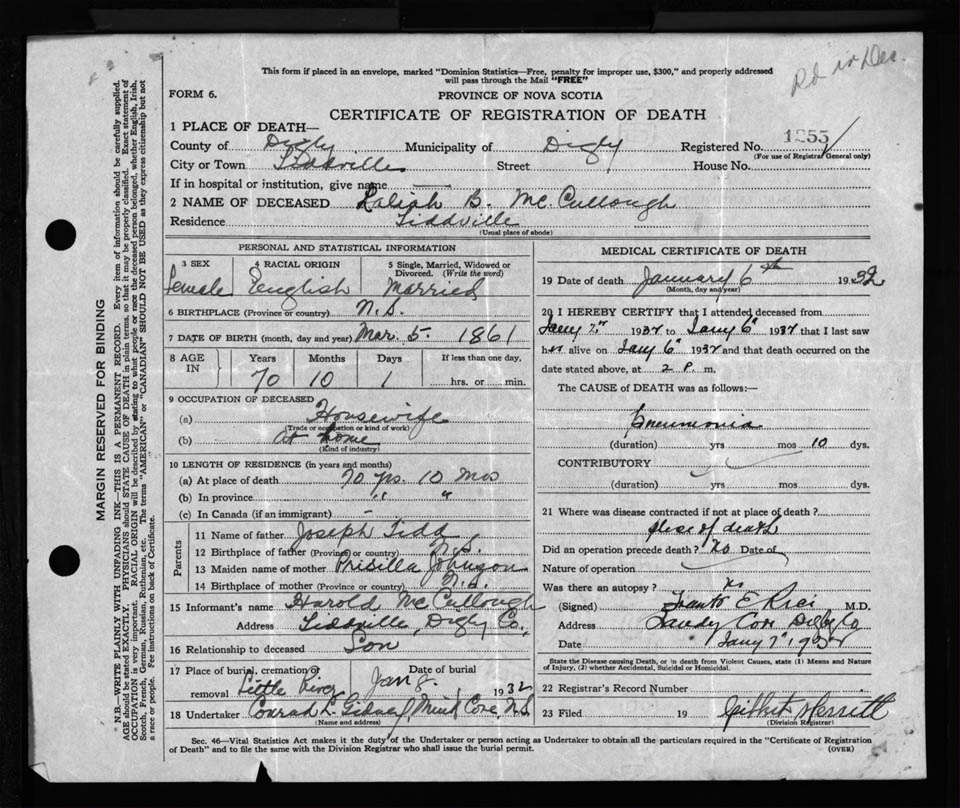 Rd in Dec.
This form if placed in an envelope, marked "Dominion Statistics—Free, penalty for improper use, $300," and properly addressed
will pass through the Mail "FREE"
FORM 6.
PROVINCE OF NOVA SCOTIA
CERTIFICATE OF REGISTRATION OF DEATH
1 PLACE OF DEATH—
County of Digby Municipality of Digby Registered No. 1255
(For use of Registrar General only)
City or Town Tiddville Street House No.
If in hospital or institution, give name
2 NAME OF DECEASED B. McCullough
Residence Tiddville
(Usual place of abode)
PERSONAL AND STATISTICAL INFORMATION
3 SEX 4 RACIAL ORIGIN 5 Single, Married, Widowed or
Divorced. (Write the word)
Female English Married
6 BIRTHPLACE (Province or country) N.S.
7 DATE OF BIRTH (month, day and year) Mar. 5. 1861
8 AGE IN Years Months Days If less than one day,
70 10 1 hrs. or min.
9 OCCUPATION OF DECEASED
(a) Housewife
(Trade or occupation or kind of work)
(b) At home
(Kind of industry)
10 LENGTH OF RESIDENCE (in years and months)
(a) At place of death 70 yrs. 10 Mos
(b) In province " "
(c) In Canada (if an immigrant) -
Parents
11 Name of father Joseph Tidd
12 Birthplace of father (Province or country) N.S.
13 Maiden name of mother Prisilla Johnson
14 Birthplace of mother (Province or country) N.S.
15 Informant's name Harold McCullough
Address Tiddville, Digby Co.,
16 Relationship to deceased Son
17 Place of burial, cremation or Date of burial
removal Little River Jan 8. 1932
18 Undertaker Conrad L. Gidney, Mink Cove, N.S.
(Name and address)
MEDICAL CERTIFICATE OF DEATH
19 Date of death January 6th 1932
(Month, day and year)
20 I HEREBY CERTIFY that I attended deceased from
1932 to Jany 6" 1932 that I last saw
her alive on Jany 6" 1932 and that death occurred on the
date stated above, at 2 P. m.
The CAUSE of DEATH was as follows:—
Pneumonia
(duration) yrs mos 10 dys.
CONTRIBUTORY
(duration) yrs mos dys.
21 Where was disease contracted if not at place of death?
place of death
Did an operation precede death? No Date of
Nature of operation
Was there an autopsy? No
(Signed) E Rice M.D.
Address Sandy Cove Digby Co
Date Jany 7" 1932
State the Disease causing Death, or in death from Violent Causes, state (1) Means and Nature
of Injury, (2) whether Accidental, Suicidal or Homicidal.
22 Registrar's Record Number
23 Filed 19 Gilbert Merritt
(Division Registrar)
Sec. 46—Vital Statistics Act makes it the duty of the Undertaker or person acting as Undertaker to obtain all the particulars required in the "Certificate of Registration
of Death" and to file the same with the Division Registrar who shall issue the burial permit. (OVER)
MARGIN RESERVED FOR BINDING
N.B.—WRITE PLAINLY WITH UNFADING INK—THIS IS A PERMANENT RECORD. Every item of information should be carefully supplied.
AGE should be stated EXACTLY. PHYSICIANS should STATE CAUSE OF DEATH in plain terms, so that it may be properly classified. Exact statement of
OCCUPATION is very important. RACIAL ORIGIN will be described by stating to what people or race the deceased person belonged, whether English, Irish,
Scotch, French, German, Russian, Ruthenian, etc. The terms "AMERICAN" or "CANADIAN" SHOULD NOT BE USED as they express citizenship but not
a race or people. Fee instructions on back of Certificate.